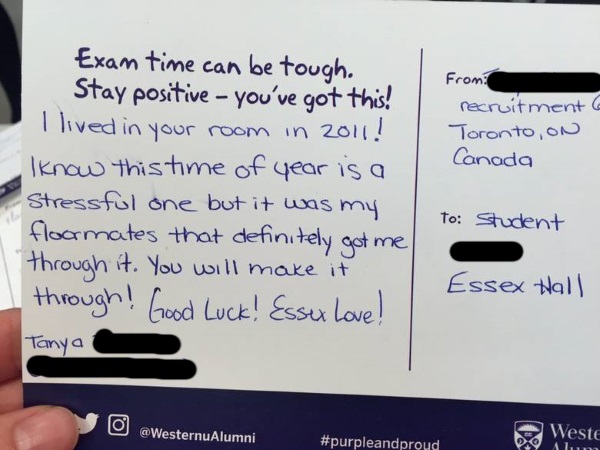 Exam time can be tough.
Stay positive – you've got this!
I lived in your room in 2011!
I know this time of year is a
stressful one but it was my
floormates that definitely got me
through it. You will make it
through! Good Luck! Essex Love!
Tanya
From:
recruitment @
Toronto, ON
Canada
To: Student
Essex Hall
@WesternuAlumni
#purpleandproud